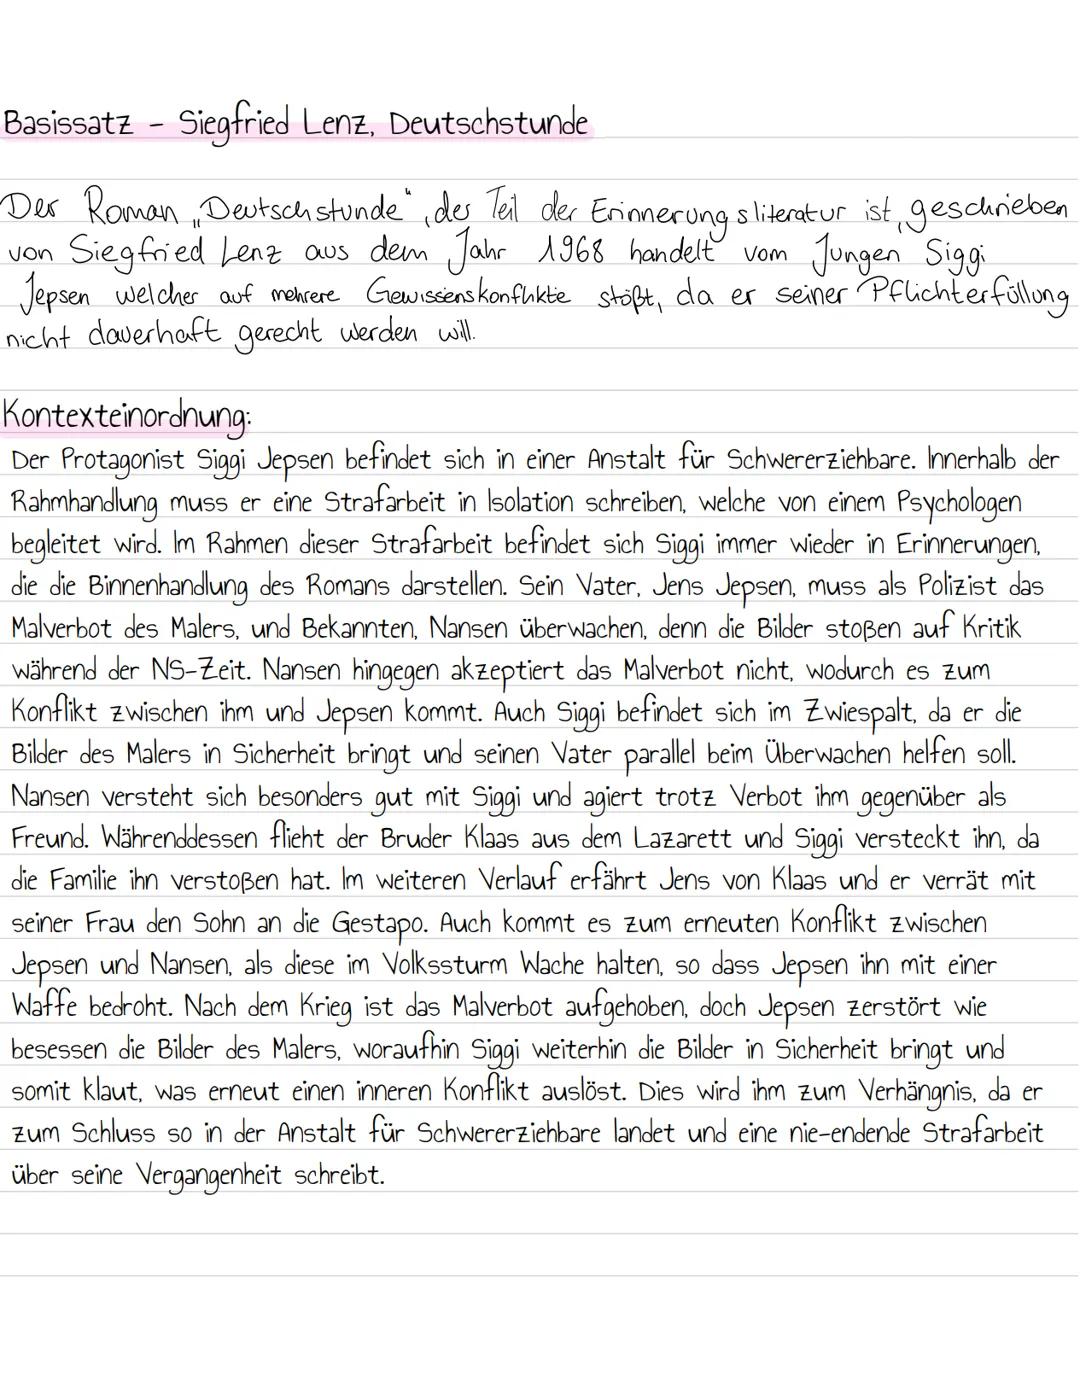 Basissatz - Siegfried Lenz, Deutschstunde
Der Roman „Deutschstunde“, der Teil der Erinnerungsliteratur ist, geschrieben
von Siegfried Lenz aus dem Jahr 1968 handelt vom Jungen Siggi
Jepsen welcher auf mehrere Gewissenskonflikte stößt, da er seiner Pflichterfüllung
nicht dauerhaft gerecht werden will.
Kontexteinordnung:
Der Protagonist Siggi Jepsen befindet sich in einer Anstalt für Schwererziehbare. Innerhalb der
Rahmhandlung muss er eine Strafarbeit in Isolation schreiben, welche von einem Psychologen
begleitet wird. Im Rahmen dieser Strafarbeit befindet sich Siggi immer wieder in Erinnerungen,
die die Binnenhandlung des Romans darstellen. Sein Vater, Jens Jepsen, muss als Polizist das
Malverbot des Malers, und Bekannten, Nansen überwachen, denn die Bilder stoßen auf Kritik
während der NS-Zeit. Nansen hingegen akzeptiert das Malverbot nicht, wodurch es zum
Konflikt zwischen ihm und Jepsen kommt. Auch Siggi befindet sich im Zwiespalt, da er die
Bilder des Malers in Sicherheit bringt und seinen Vater parallel beim Überwachen helfen soll.
Nansen versteht sich besonders gut mit Siggi und agiert trotz Verbot ihm gegenüber als
Freund. Währenddessen flieht der Bruder Klaas aus dem Lazarett und Siggi versteckt ihn, da
die Familie ihn verstoßen hat. Im weiteren Verlauf erfährt Jens von Klaas und er verrät mit
seiner Frau den Sohn an die Gestapo. Auch kommt es zum erneuten Konflikt zwischen
Jepsen und Nansen, als diese im Volkssturm Wache halten, so dass Jepsen ihn mit einer
Waffe bedroht. Nach dem Krieg ist das Malverbot aufgehoben, doch Jepsen zerstört wie
besessen die Bilder des Malers, woraufhin Siggi weiterhin die Bilder in Sicherheit bringt und
somit klaut, was erneut einen inneren Konflikt auslöst. Dies wird ihm zum Verhängnis, da er
zum Schluss so in der Anstalt für Schwererziehbare landet und eine nie-endende Strafarbeit
über seine Vergangenheit schreibt.